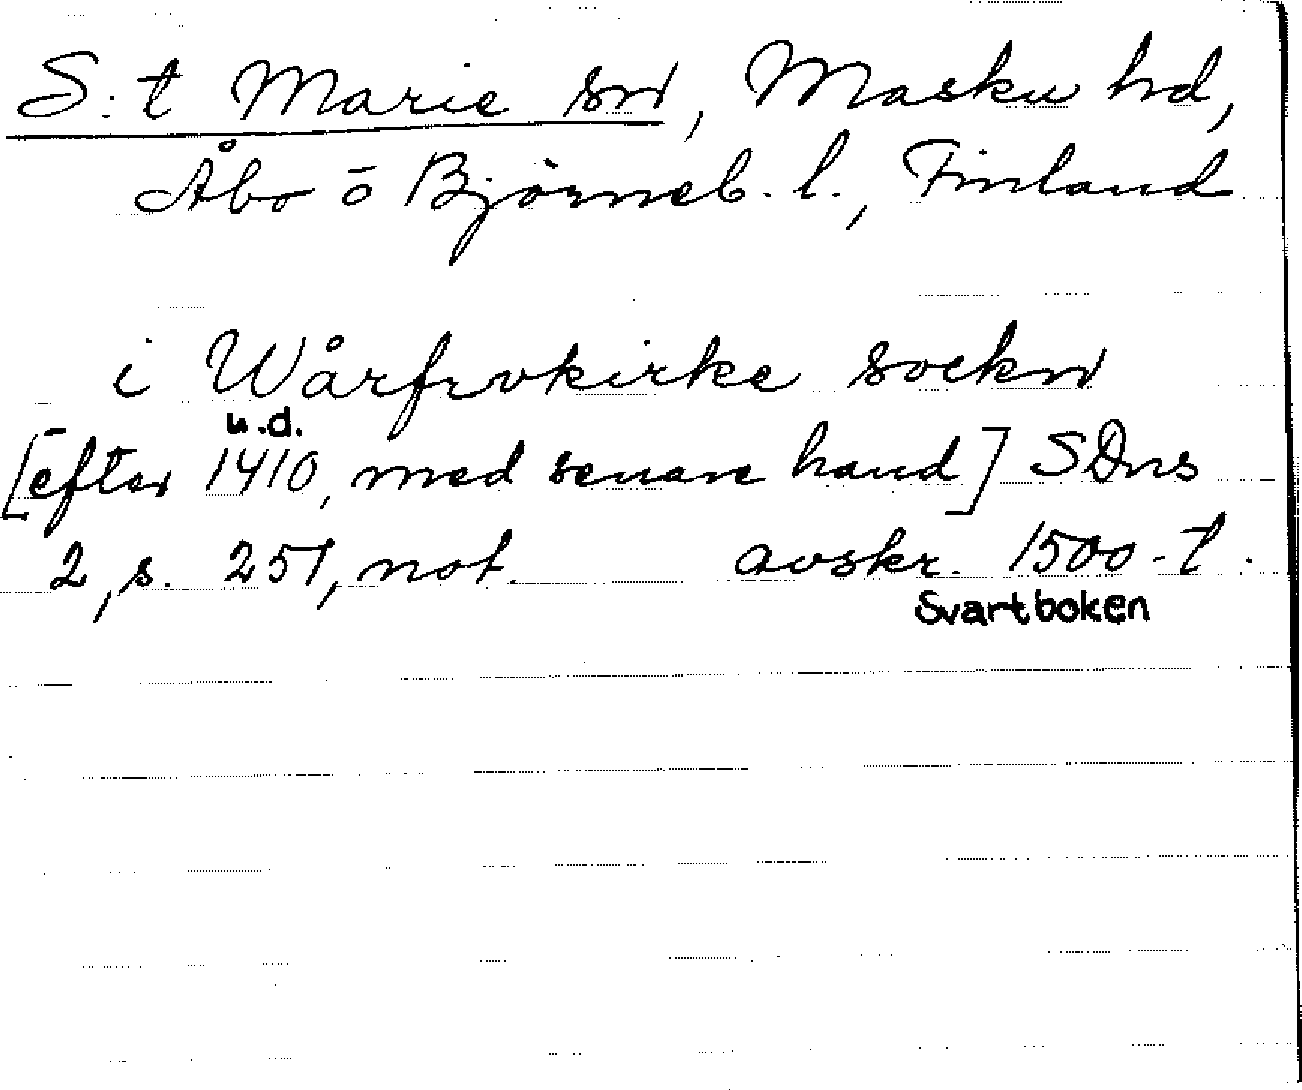 S:t Marie sn, Masku hd,
Åbo o Björneb. l., Finland
i Wårfrvkirke sockn
u.d.
[efter 1410, med senare hand] SDns
2, s. 251, not. avskr. 1500-t.
Svartboken